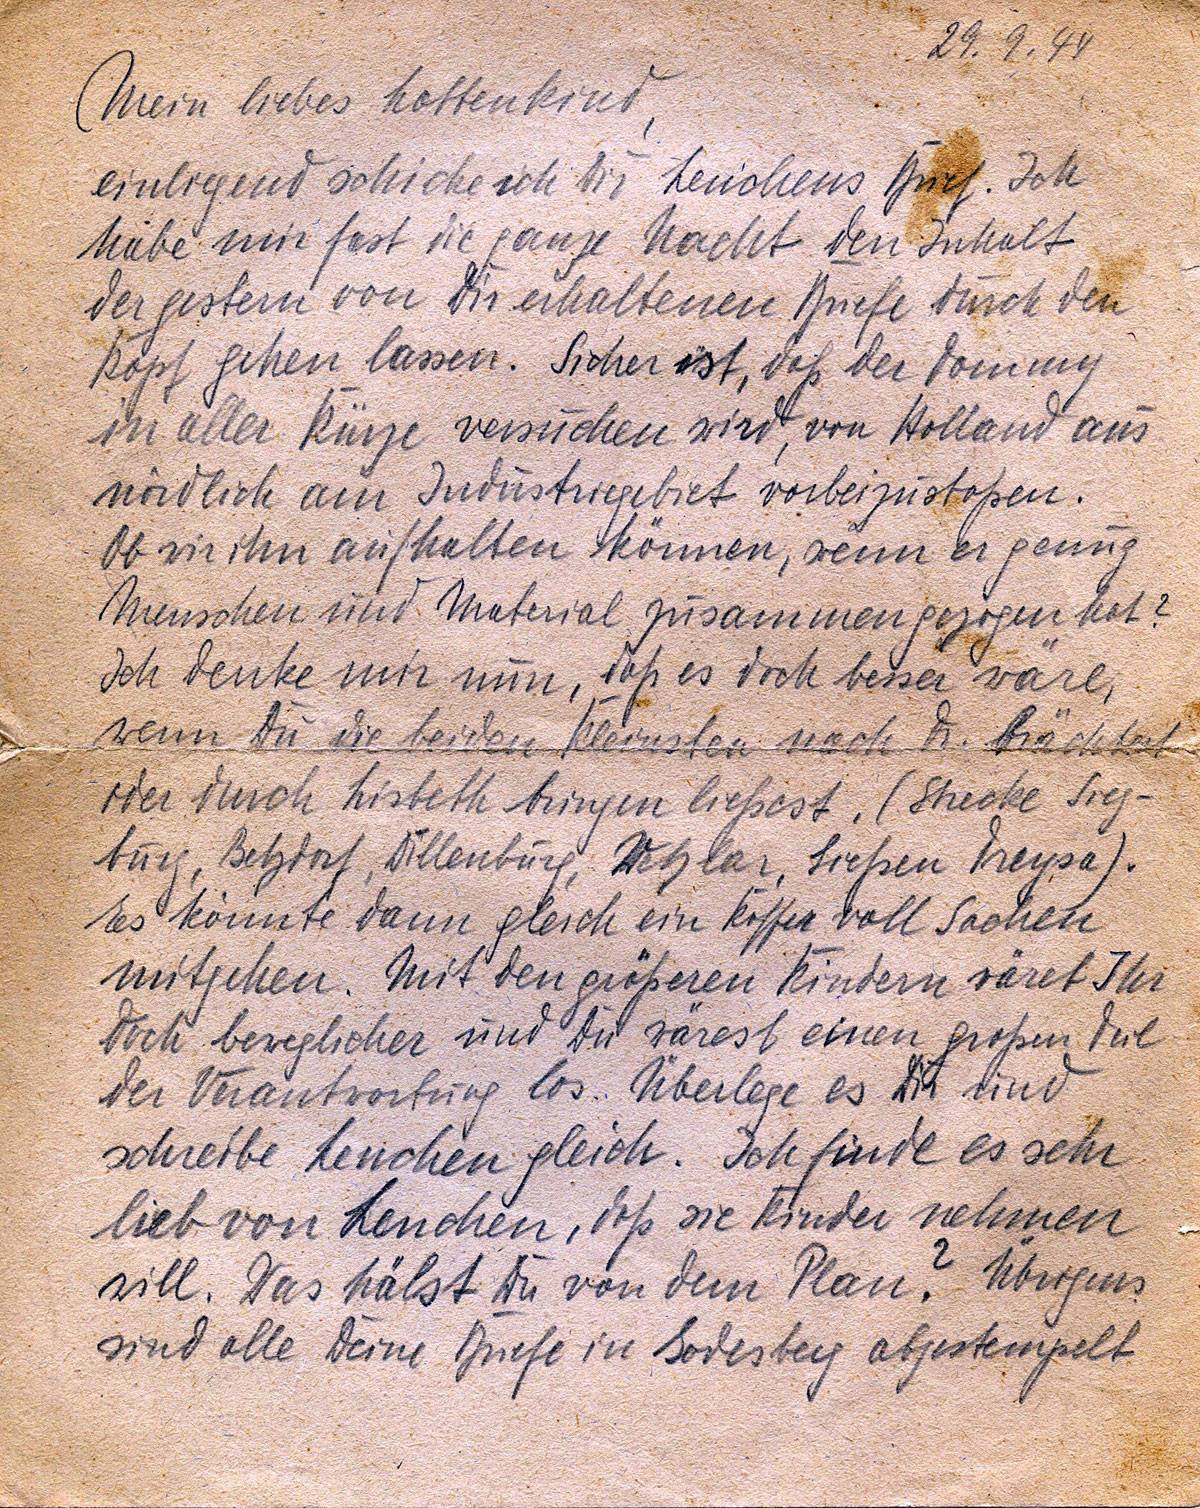 29. 9. 44
Mein liebes Lottenkind,
einliegend schicke ich Dir Lenchens Brief. Ich
habe mir fast die ganze Nacht den Inhalt
der gestern von Dir erhaltenen Briefe durch den
Kopf gehen lassen. Sicher ist, daß der Tommy
in aller Kürze versuchen wird, von Holland aus
nördlich am Industriegebiet vorbeizustoßen.
Ob wir ihn aufhalten können, wenn er genug
Menschen und Material zusammengezogen hat?
Ich denke mir nun, daß es doch besser wäre,
wenn Du die beiden Kleinsten nach Tr. brächtest
oder durch Lisbeth bringen ließest. (Strecke Sieg-
burg, Betzdorf, Dillenburg, Wetzlar, Gießen Treysa).
Es könnte dann gleich ein Koffer voll Sachen
mitgehen. Mit den größeren Kindern wäret Ihr
doch beweglicher und Du wärest einen großen Teil
der Verantwortung los. Überlege es Dir und
schreibe Lenchen gleich. Ich finde es sehr
lieb von Lenchen, daß sie Kinder nehmen
will. Was hälst Du von dem Plan? Übrigens
sind alle Deine Briefe in Godesberg abgestempelt